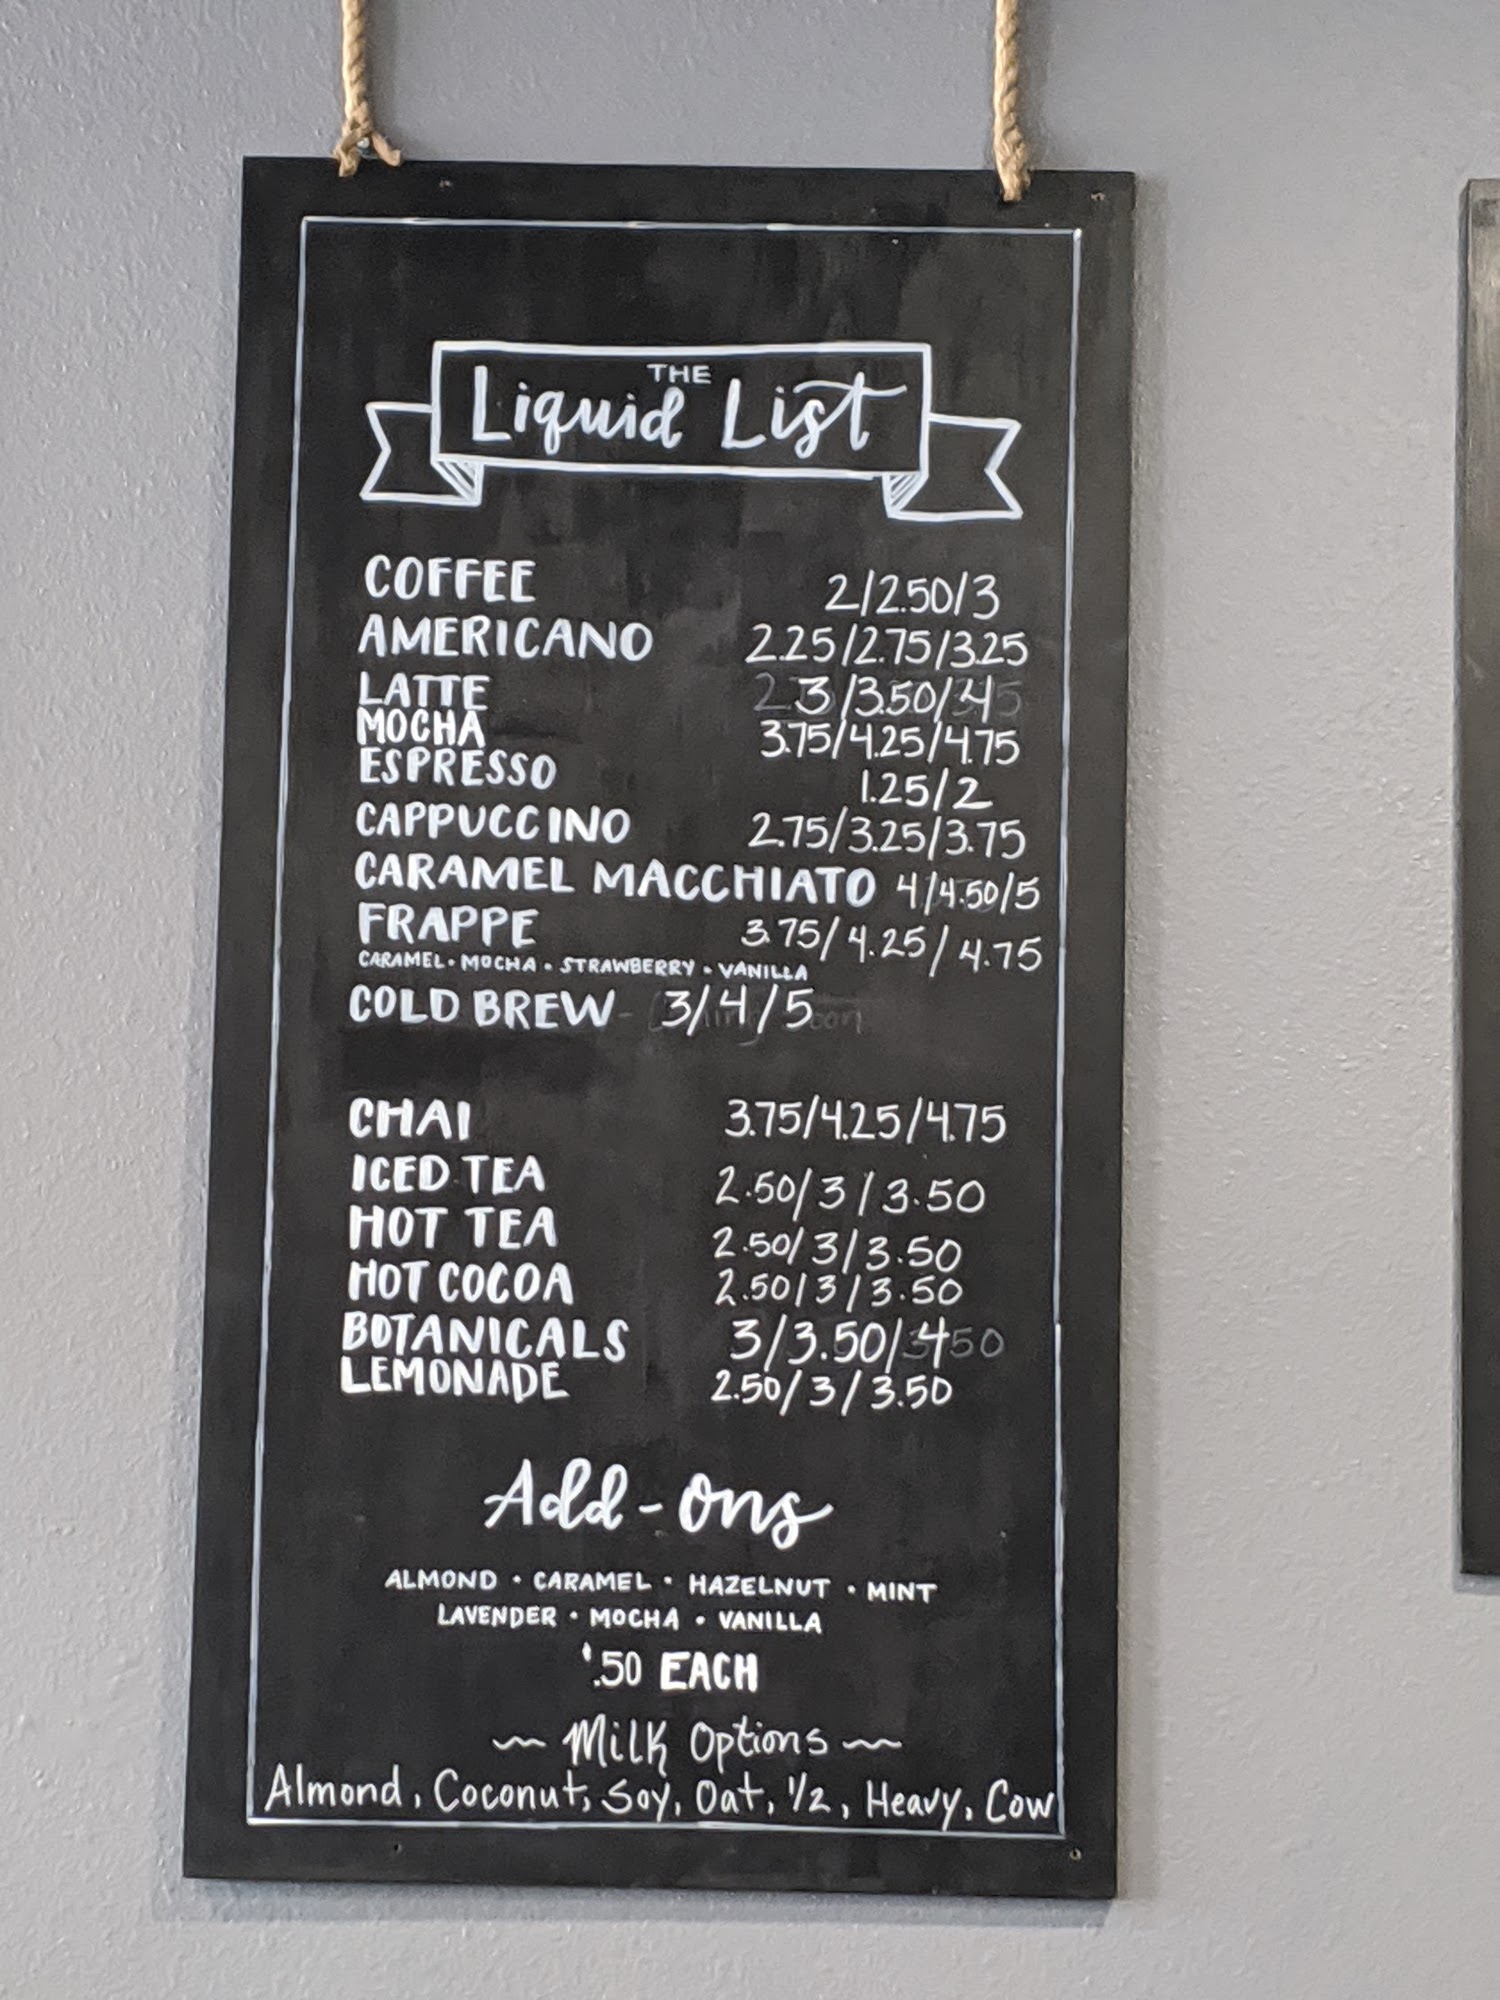 THE
Liquid List
COFFEE 2/2.50/3
AMERICANO 2.25/2.75/3.25
LATTE 3/3.50/4
MOCHA 3.75/4.25/4.75
ESPRESSO 1.25/2
CAPPUCCINO 2.75/3.25/3.75
CARAMEL MACCHIATO 4/4.50/5
FRAPPE 3.75/4.25/4.75
CARAMEL • MOCHA • STRAWBERRY • VANILLA
COLD BREW - 3/4/5
CHAI 3.75/4.25/4.75
ICED TEA 2.50/3/3.50
HOT TEA 2.50/3/3.50
HOT COCOA 2.50/3/3.50
BOTANICALS 3/3.50/4
LEMONADE 2.50/3/3.50
Add-ons
ALMOND • CARAMEL • HAZELNUT • MINT
LAVENDER • MOCHA • VANILLA
$.50 EACH
~ Milk Options ~
Almond, Coconut, Soy, Oat, 1/2, Heavy, Cow